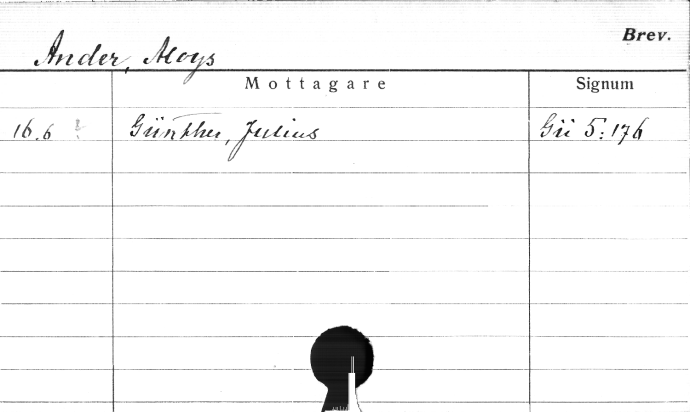 Brev.
Ander, Aloys
Mottagare Signum
16.6 ? Günther, Julius Gü 5:176